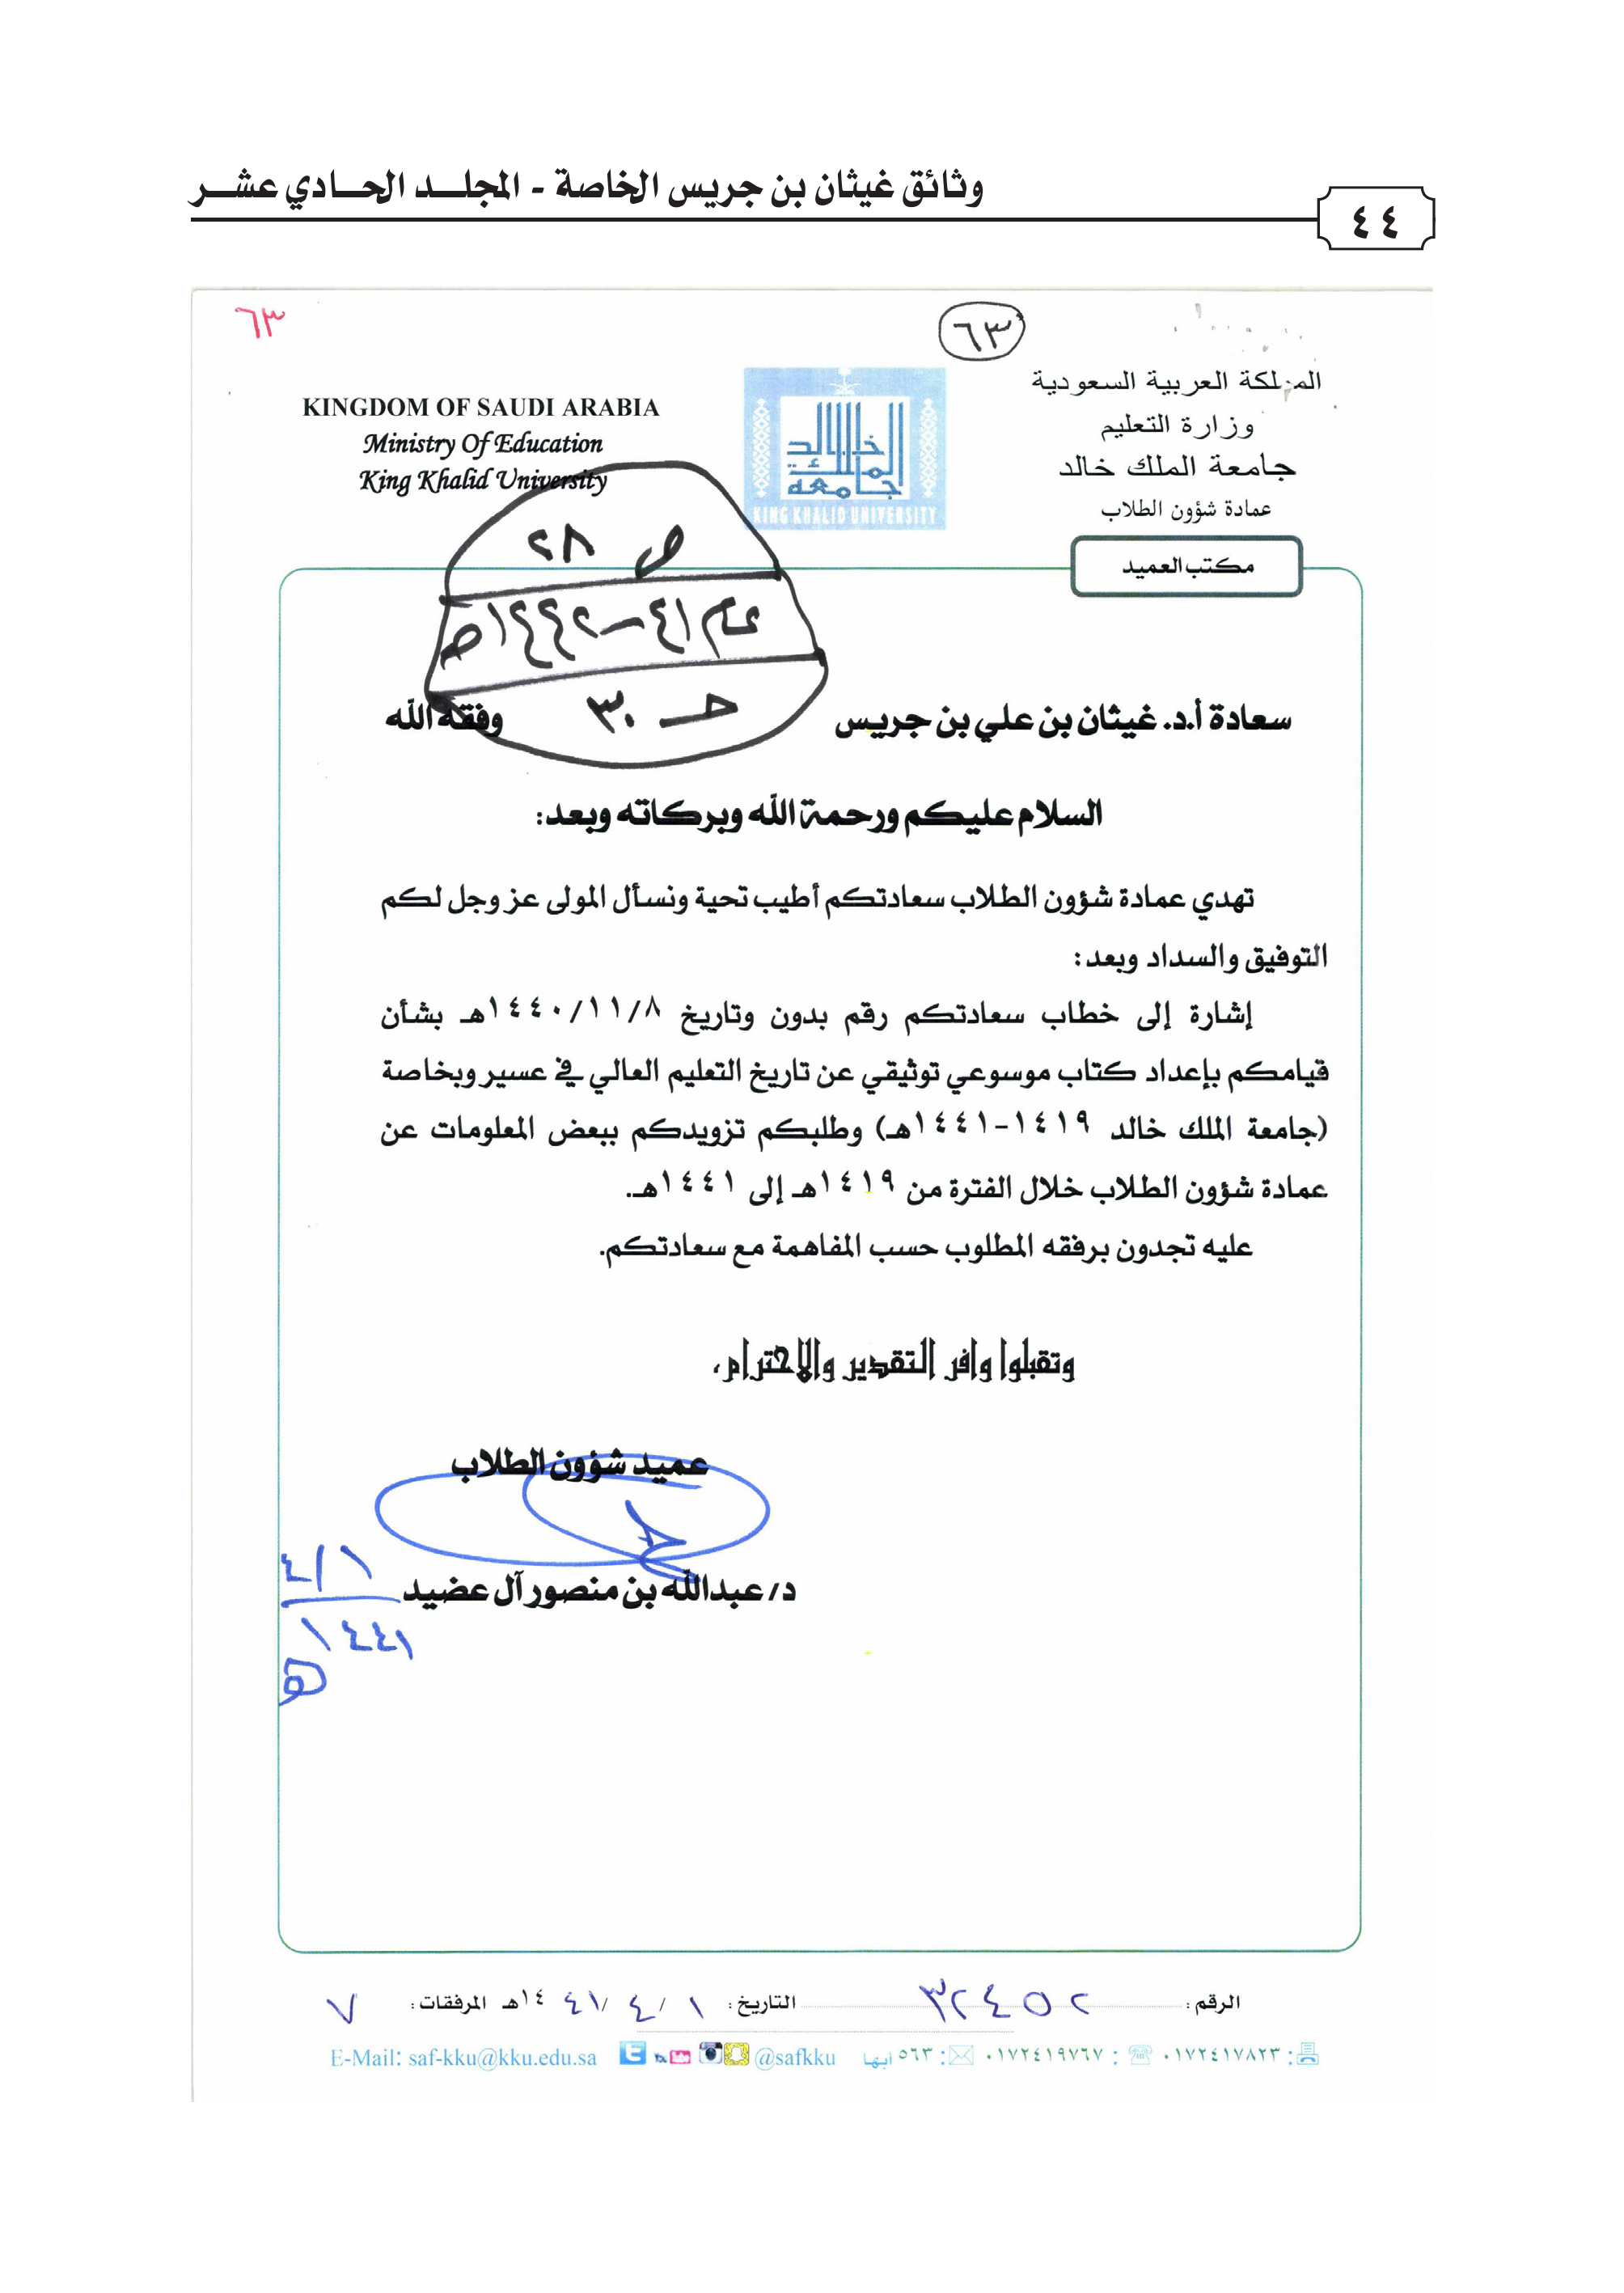 وثائق غيثان بن جريس الخاصة - المجلد الحادي عشر
٤٤
٦٣
٦٣
المملكة العربية السعودية
وزارة التعليم
جامعة الملك خالد
عمادة شؤون الطلاب
مكتب العميد
KINGDOM OF SAUDI ARABIA
Ministry Of Education
King Khalid University
جامعة الملك خالد
KING KHALID UNIVERSITY
ص ٢٨
عام ٤١-١٤٤٢هـ
حـ ٣٠
سعادة أ.د. غيثان بن علي بن جريس وفقه الله
السلام عليكم ورحمة الله وبركاته وبعد:
تهدي عمادة شؤون الطلاب سعادتكم أطيب تحية ونسأل المولى عز وجل لكم
التوفيق والسداد وبعد:
إشارة إلى خطاب سعادتكم رقم بدون وتاريخ ١٤٤٠/١١/٨هـ بشأن
قيامكم بإعداد كتاب موسوعي توثيقي عن تاريخ التعليم العالي في عسير وبخاصة
(جامعة الملك خالد ١٤١٩-١٤٤١هـ) وطلبكم تزويدكم ببعض المعلومات عن
عمادة شؤون الطلاب خلال الفترة من ١٤١٩هـ إلى ١٤٤١هـ.
عليه تجدون برفقه المطلوب حسب المفاهمة مع سعادتكم.
وتقبلوا وافر التقدير والاحترام،
عميد شؤون الطلاب
د/ عبدالله بن منصور آل عضيد
٤/١
١٤٤١
هـ
الرقم: ٣٢٤٥٢ التاريخ: ١/٤/١٤٤١هـ المرفقات: ٧
٠١٧٢٤١٧٨٢٣ : ٠١٧٢٤١٩٧٦٧ : ٥٦٣ أبها @safkku E-Mail: saf-kku@kku.edu.sa